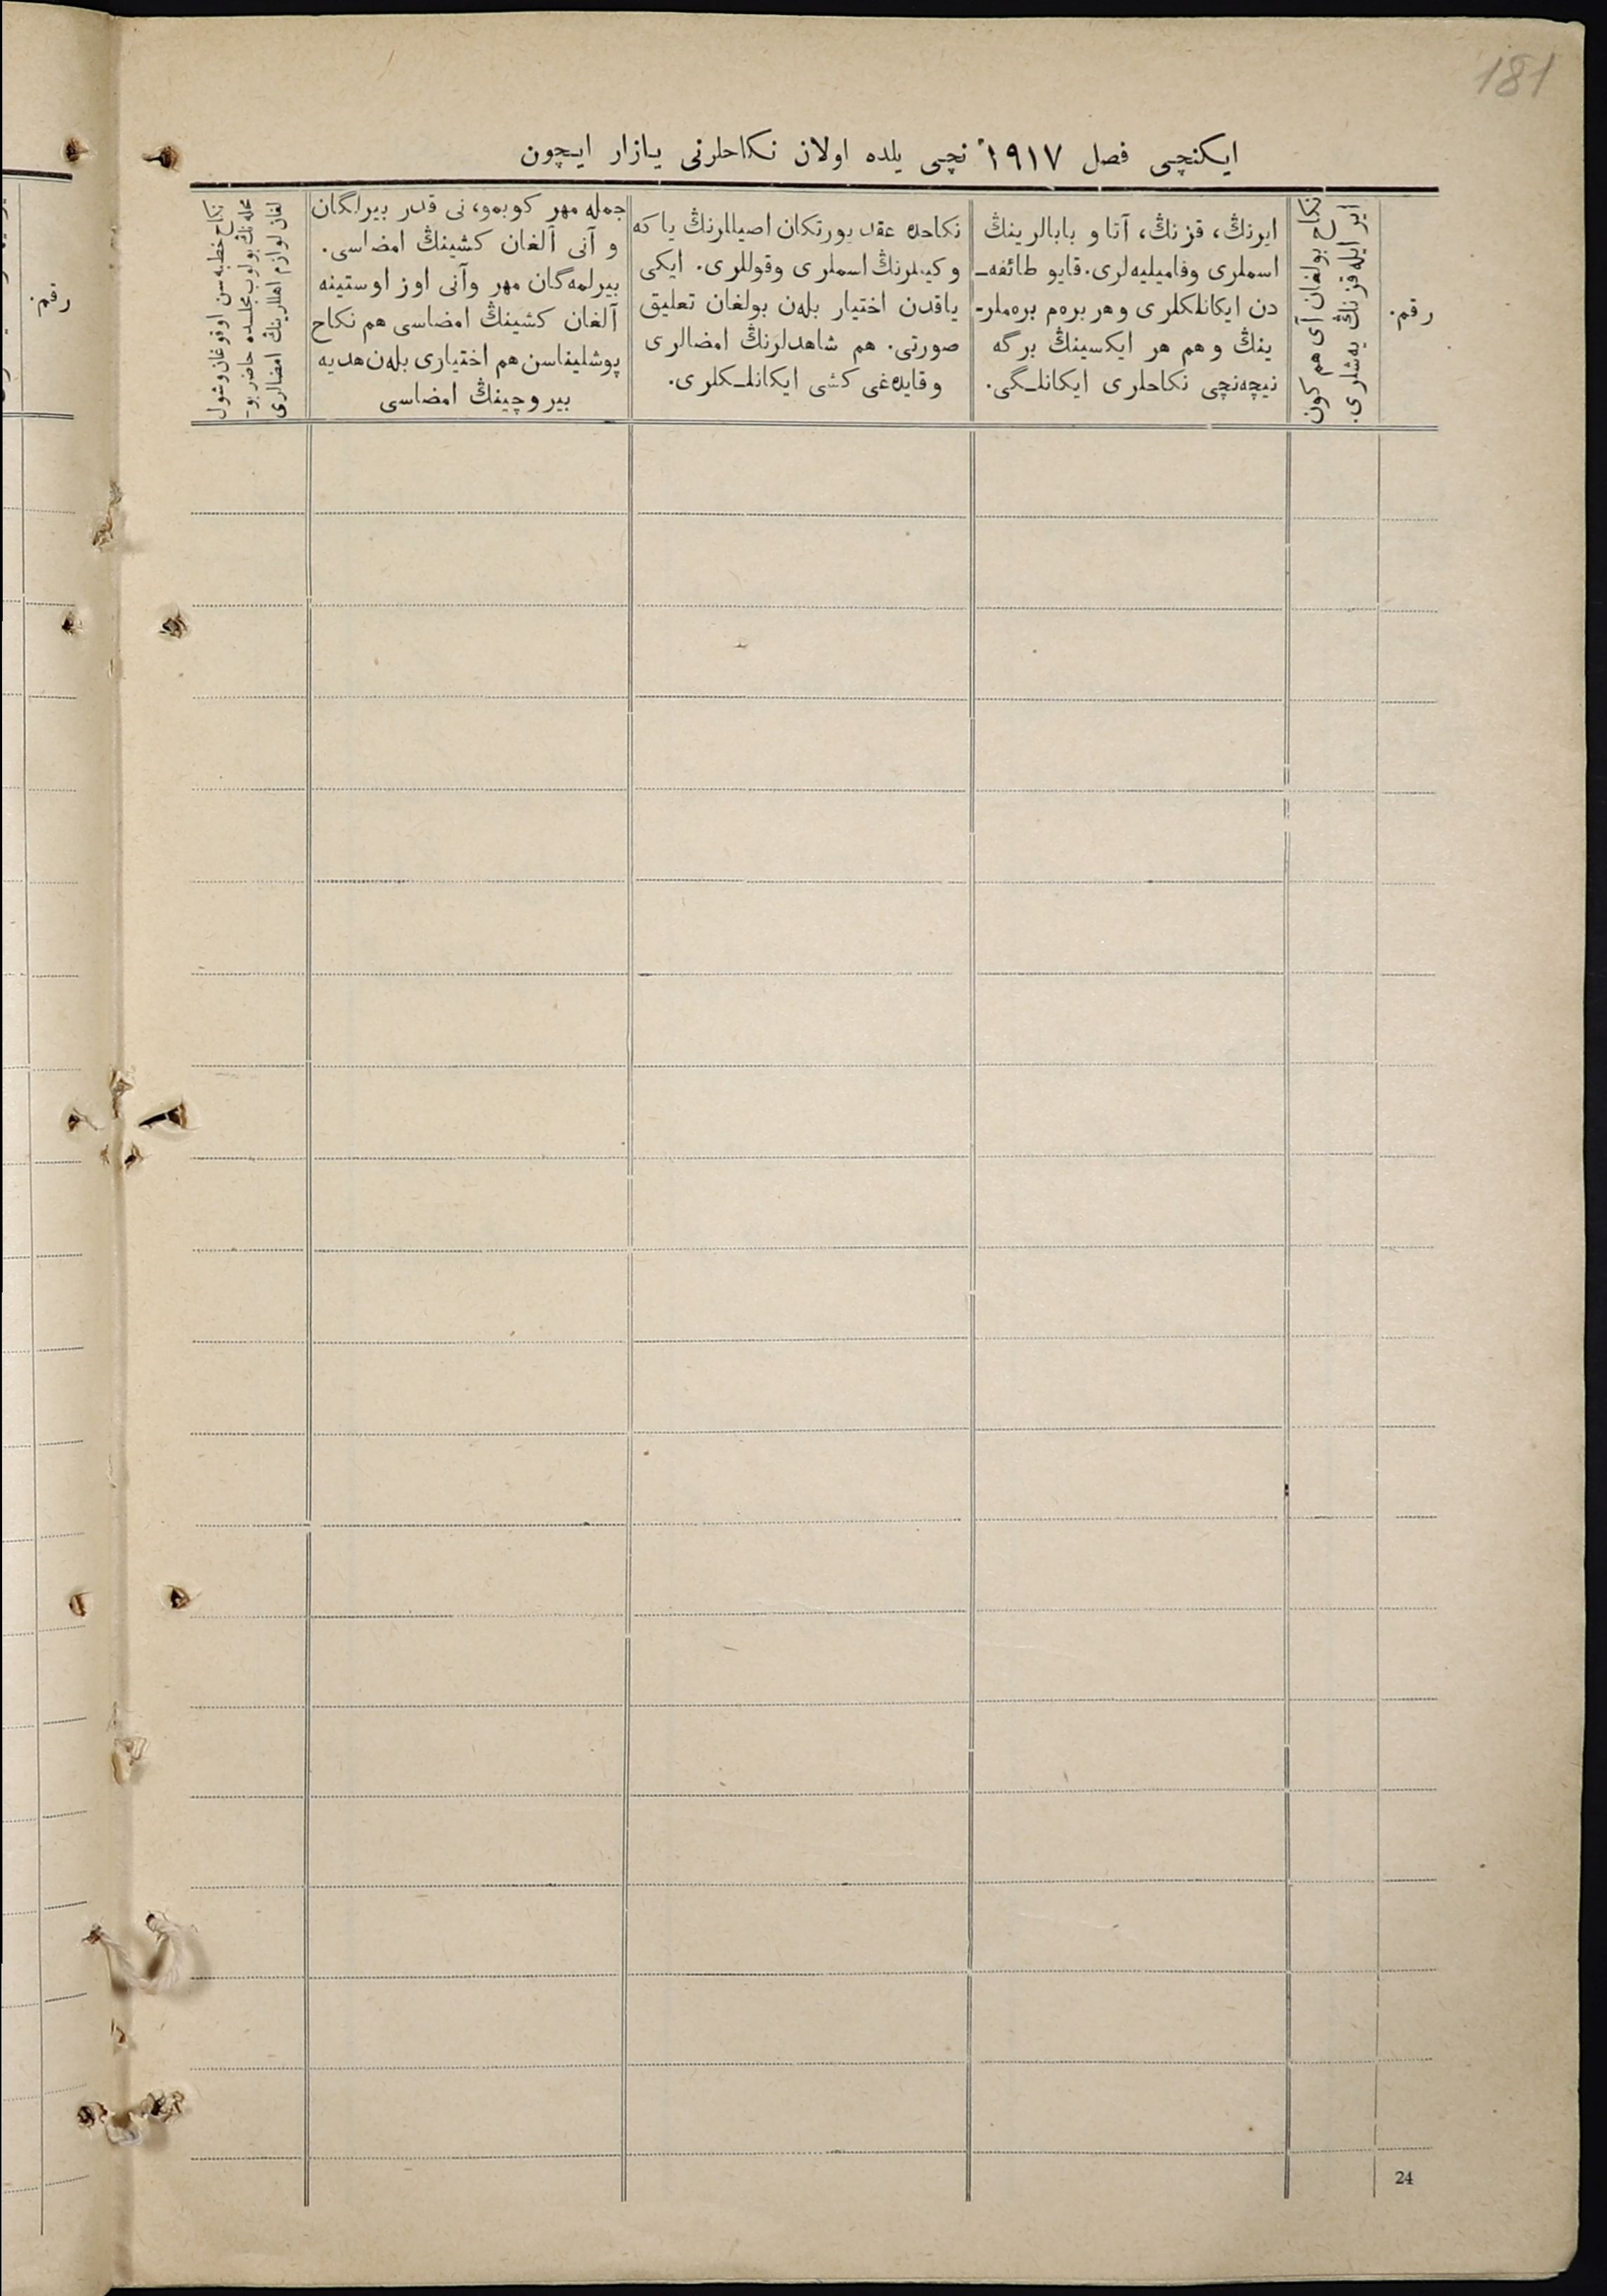 181
ایکنچی فصل ۱۹۱۷ نچی یلده اولان نکاحلرنی یازار ایچون
رقم.
نکاح بولغان آی هم کون
ایر ایله قزنڭ یه‌شلری.
ایرنڭ، قزنڭ، آتا و بابالرینڭ
اسملری وفامیلیه‌لری. قایو طائفه‌ـ
دن ایکانلکلری و هر بره‌م بره‌ملرـ
ینڭ و هم هر ایکسینڭ برگه
نیچه‌نچی نکاحلری ایکانلـگی.
نکاحده عقد یورتکان اصیللرنڭ یا که
وکیلرنڭ اسملری وقوللری. ایکی
یاقدن اختیار بله‌ن بولغان تعلیق
صورتی. هم شاهدلرنڭ امضالری
وقایده‌غی کشی ایکانلـکلری.
جمله مهر کوبمو، نی قدر بیرلگان
و آنی آلغان کشینڭ امضاسی.
بیرلمه‌گان مهر وآنی اوز اوستینه
آلغان کشینڭ امضاسی هم نکاح
پوشلیناسن هم اختیاری بله‌ن هدیه
بیروچینڭ امضاسی
نکاح خطبه‌سن اوقوغان وشول
محله‌نڭ بولوب مجلسده حاضر بوـ
لغان لوازم اهللرینڭ امضالری
رقم.
24